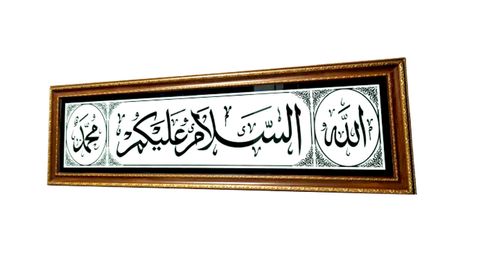 الله
السلام عليكم
محمد